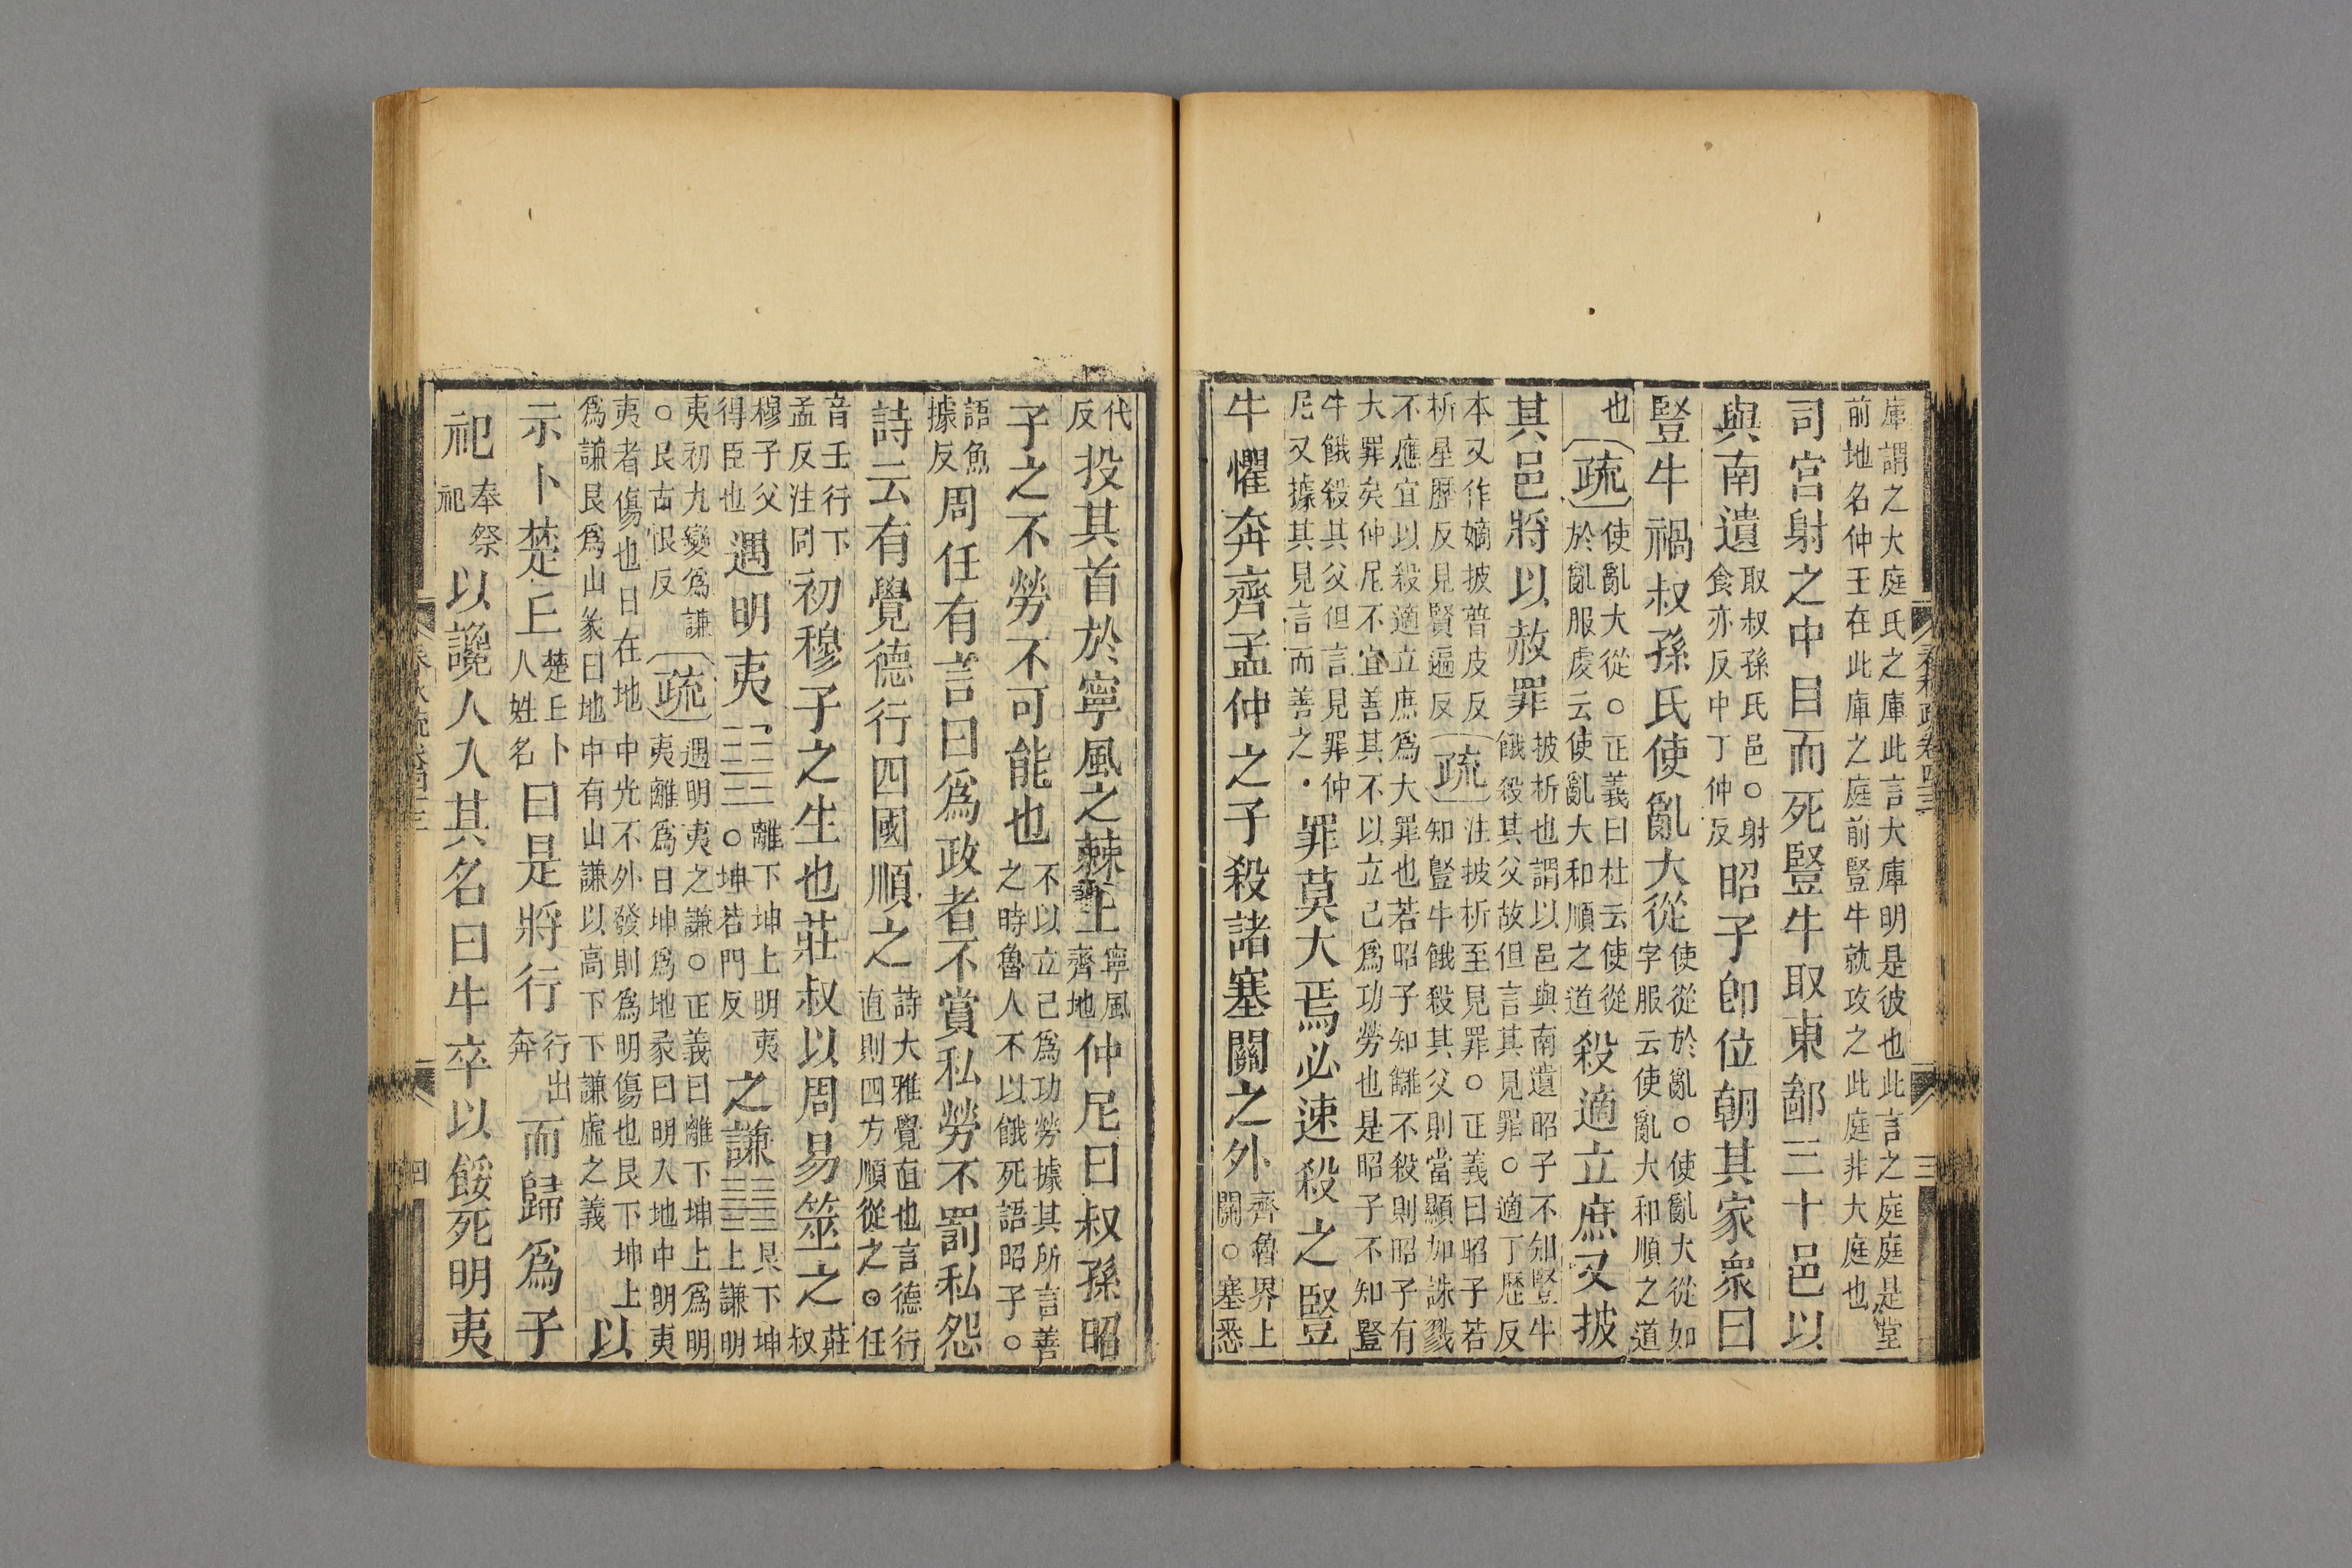 庫謂之大庭氏之庫此言大庫明是彼也此言之庭庭是堂
前地名仲壬在此庫之庭前豎牛就攻之此庭非大庭也
司宮射之中目而死豎牛取東鄙三十邑以
與南遺取叔孫氏邑○射食亦反中丁仲反昭子卽位朝其家衆曰
豎牛禍叔孫氏使亂大從使從於亂○使亂大從如字服云使亂大和順之道
也疏使亂大從○正義曰杜云使從於亂服虔云使亂大和順之道殺適立庶又披
其邑將以赦罪披析也謂以邑與南遺昭子不知豎牛餓殺其父故但言其見罪○適丁歷反
本又作嫡披普皮反析星歷反見賢遍反疏注披析至見罪○正義曰昭子若知豎牛餓殺其父則當顯加誅戮
不應宜以殺適立庶爲大罪也若昭子知讎不殺則昭子有
大罪矣仲尼不宜善其不以立己爲功勞也是昭子不知豎
牛餓殺其父但言見罪仲尼又據其見言而善之罪莫大焉必速殺之豎
牛懼奔齊孟仲之子殺諸塞關之外齊魯界上關○塞悉
代反投其首於寧風之棘上寧風齊地仲尼曰叔孫昭
子之不勞不可能也不以立己爲功勞據其所言善之時魯人不以餓死語昭子○
語魚據反周任有言曰爲政者不賞私勞不罰私怨
詩云有覺德行四國順之詩大雅覺直也言德行直則四方順從之○任
音壬行下孟反注同初穆子之生也莊叔以周易筮之莊叔
穆子父得臣也遇明夷䷣離下坤上明夷○坤若門反之謙䷎艮下坤上謙明
夷初九變爲謙○艮古恨反疏遇明夷之謙○正義曰離下坤上爲明夷離爲日坤爲地彖曰明入地中明夷
夷者傷也日在地中光不外發則爲明傷也艮下坤上
爲謙艮爲山彖曰地中有山謙以高下下謙虛之義以
示卜楚丘楚丘卜人姓名曰是將行行出奔而歸爲子
祀奉祭祀以讒人入其名曰牛卒以餒死明夷